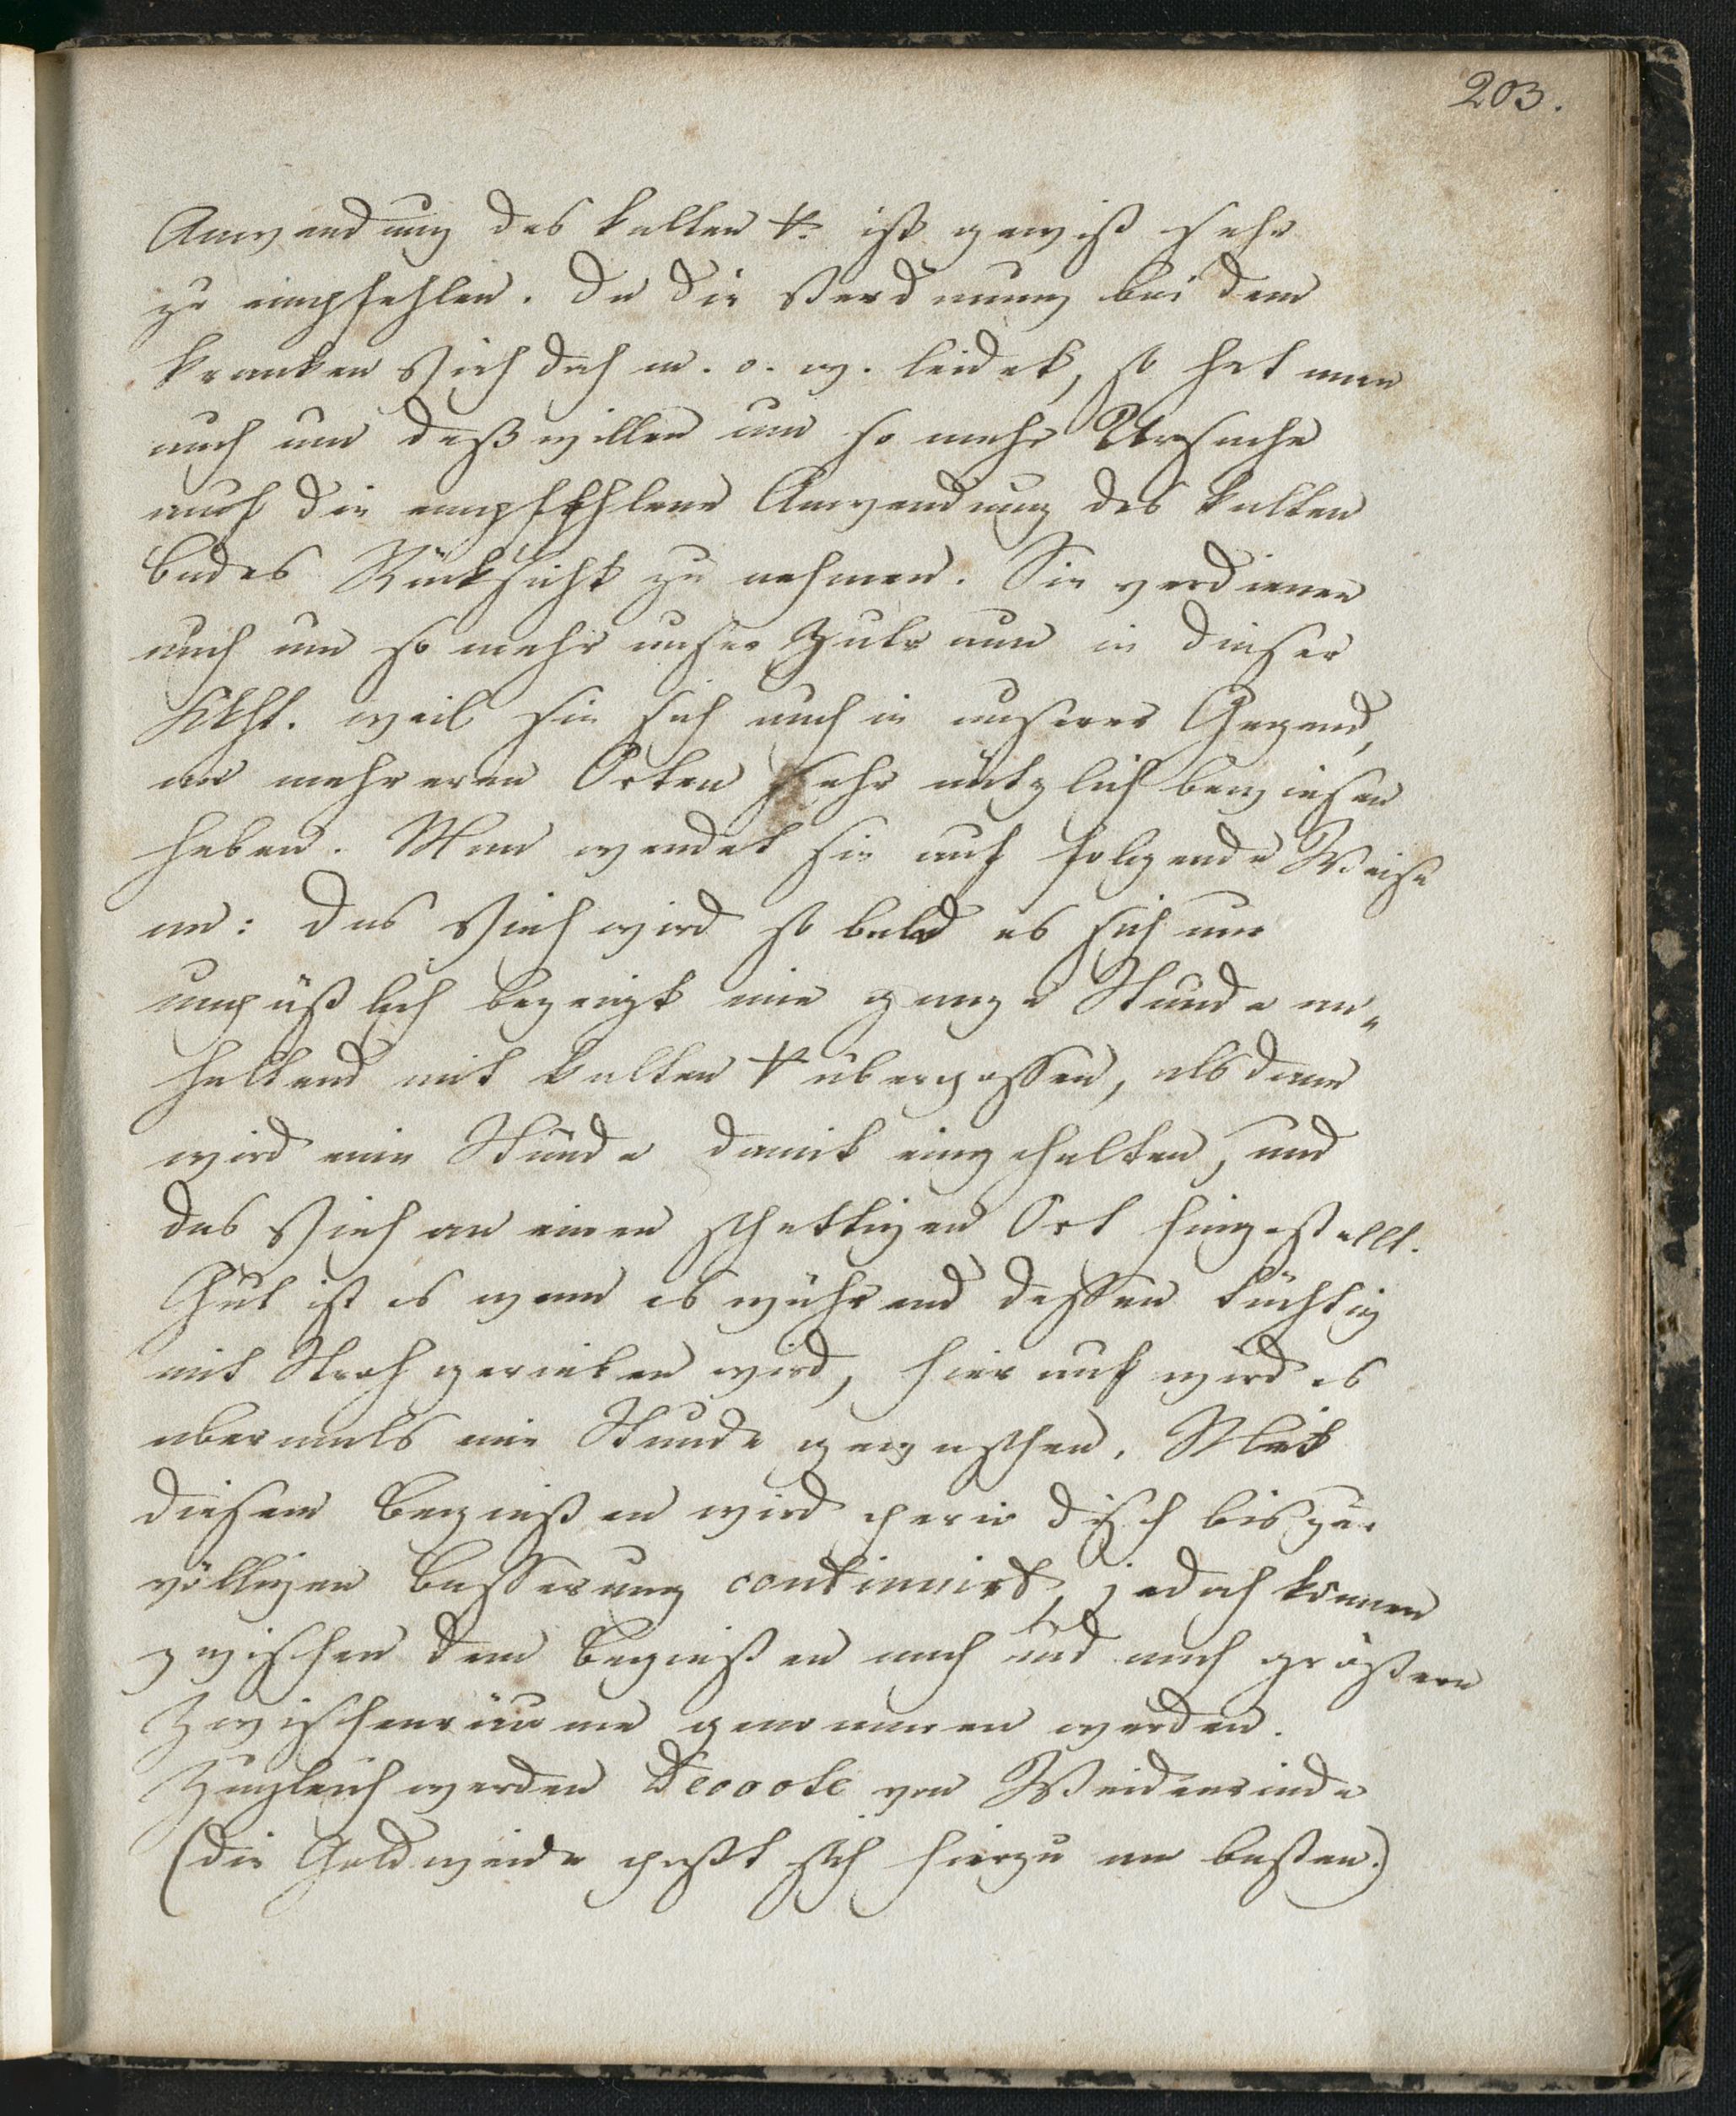 203.
Anwendung des kalten ∀. ist gewiß sehr
zu empfehlen. Da die Verdauung bei dem
kranken Vieh doch m. o. w. leidet, so hat man
auch um deßwillen um so mehr Ursache
auf die empfohlene Anwendung des kalten
Bades Rücksicht zu nehmen. Sie verdienen
auch um so mehr unser Zutraun in dieser
Kkht. weil sie sich auch in unserer Gegend,
an mehreren Orten sehr nützlich bewiesen
haben. Man wendet sie auf folgende Weise
an: das Vieh wird so bald es sich nur
unpäßlich bezeigt eine ganze Stunde an„
haltend mit kalten ∀ übergossen, alsdann
wird eine Stunde damit eingehalten, und
das Vieh an einen schattigen Ort hingestellt.
Gut ist es wenn es während dessen tüchtig
mit Stroh gerieben wird, hierauf wird es
abermals eine Stunde gewaschen. Mit
diesem Begießen wird periodisch bis zur
völligen Besserung continuirt, jedoch können
zwischen dem Begießen nach und nach größere
Zwischenräume genommen werden.
Zugleich werden Decocte von Weidenrinde
(die Goldweide paßt sich hierzu am besten.)